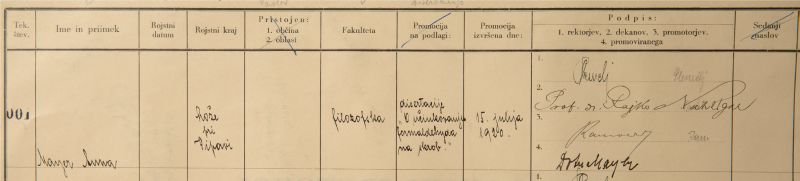 Tek. štev.
Ime in priimek
Rojstni datum
Rojstni kraj
Pristojen:
1. občina
2. oblast
Fakulteta
Promocija na podlagi:
Promocija izvršena dne:
Podpis:
1. rektorjev, 2. dekanov, 3. promotorjev,
4. promoviranega
Sedanji naslov
001
Mayer Anna
Lože
pri
Vipavi
filozofska
disertacije
"O učinkovanju
formaldehyda
na škrob."
15. julija
1920.
1.
2. Prof. dr. Rajko Nahtigal
3.
4.
1.